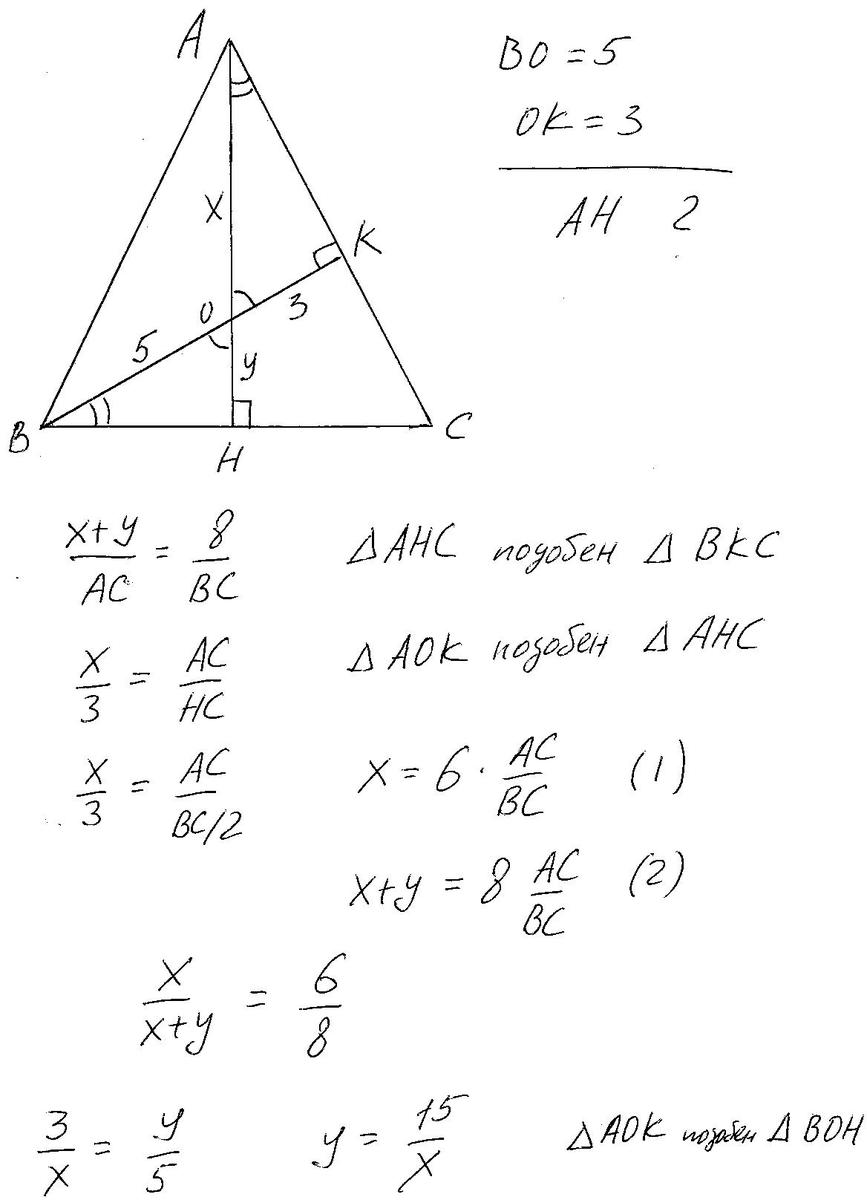 A
BO = 5
OK = 3
AH 2
x
K
O
3
5
y
B
H
C
x+y/AC = 8/BC ΔAHC подобен ΔBKC
x/3 = AC/HC ΔAOK подобен ΔAHC
x/3 = AC/BC/2 x = 6 · AC/BC (1)
x+y = 8 AC/BC (2)
x/x+y = 6/8
3/x = y/5 y = 15/x ΔAOK подобен ΔBOH